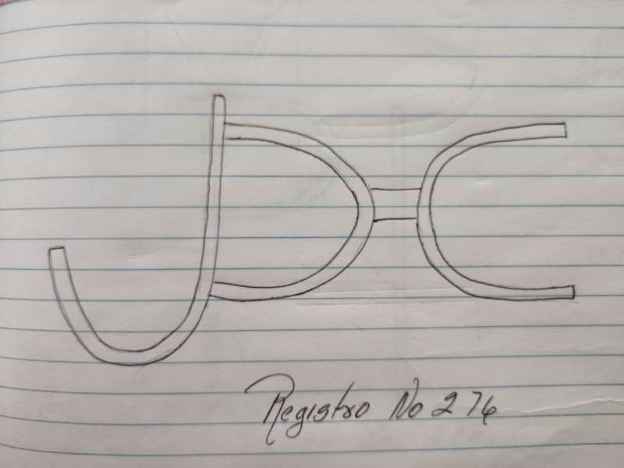 JDC
Registro No 276